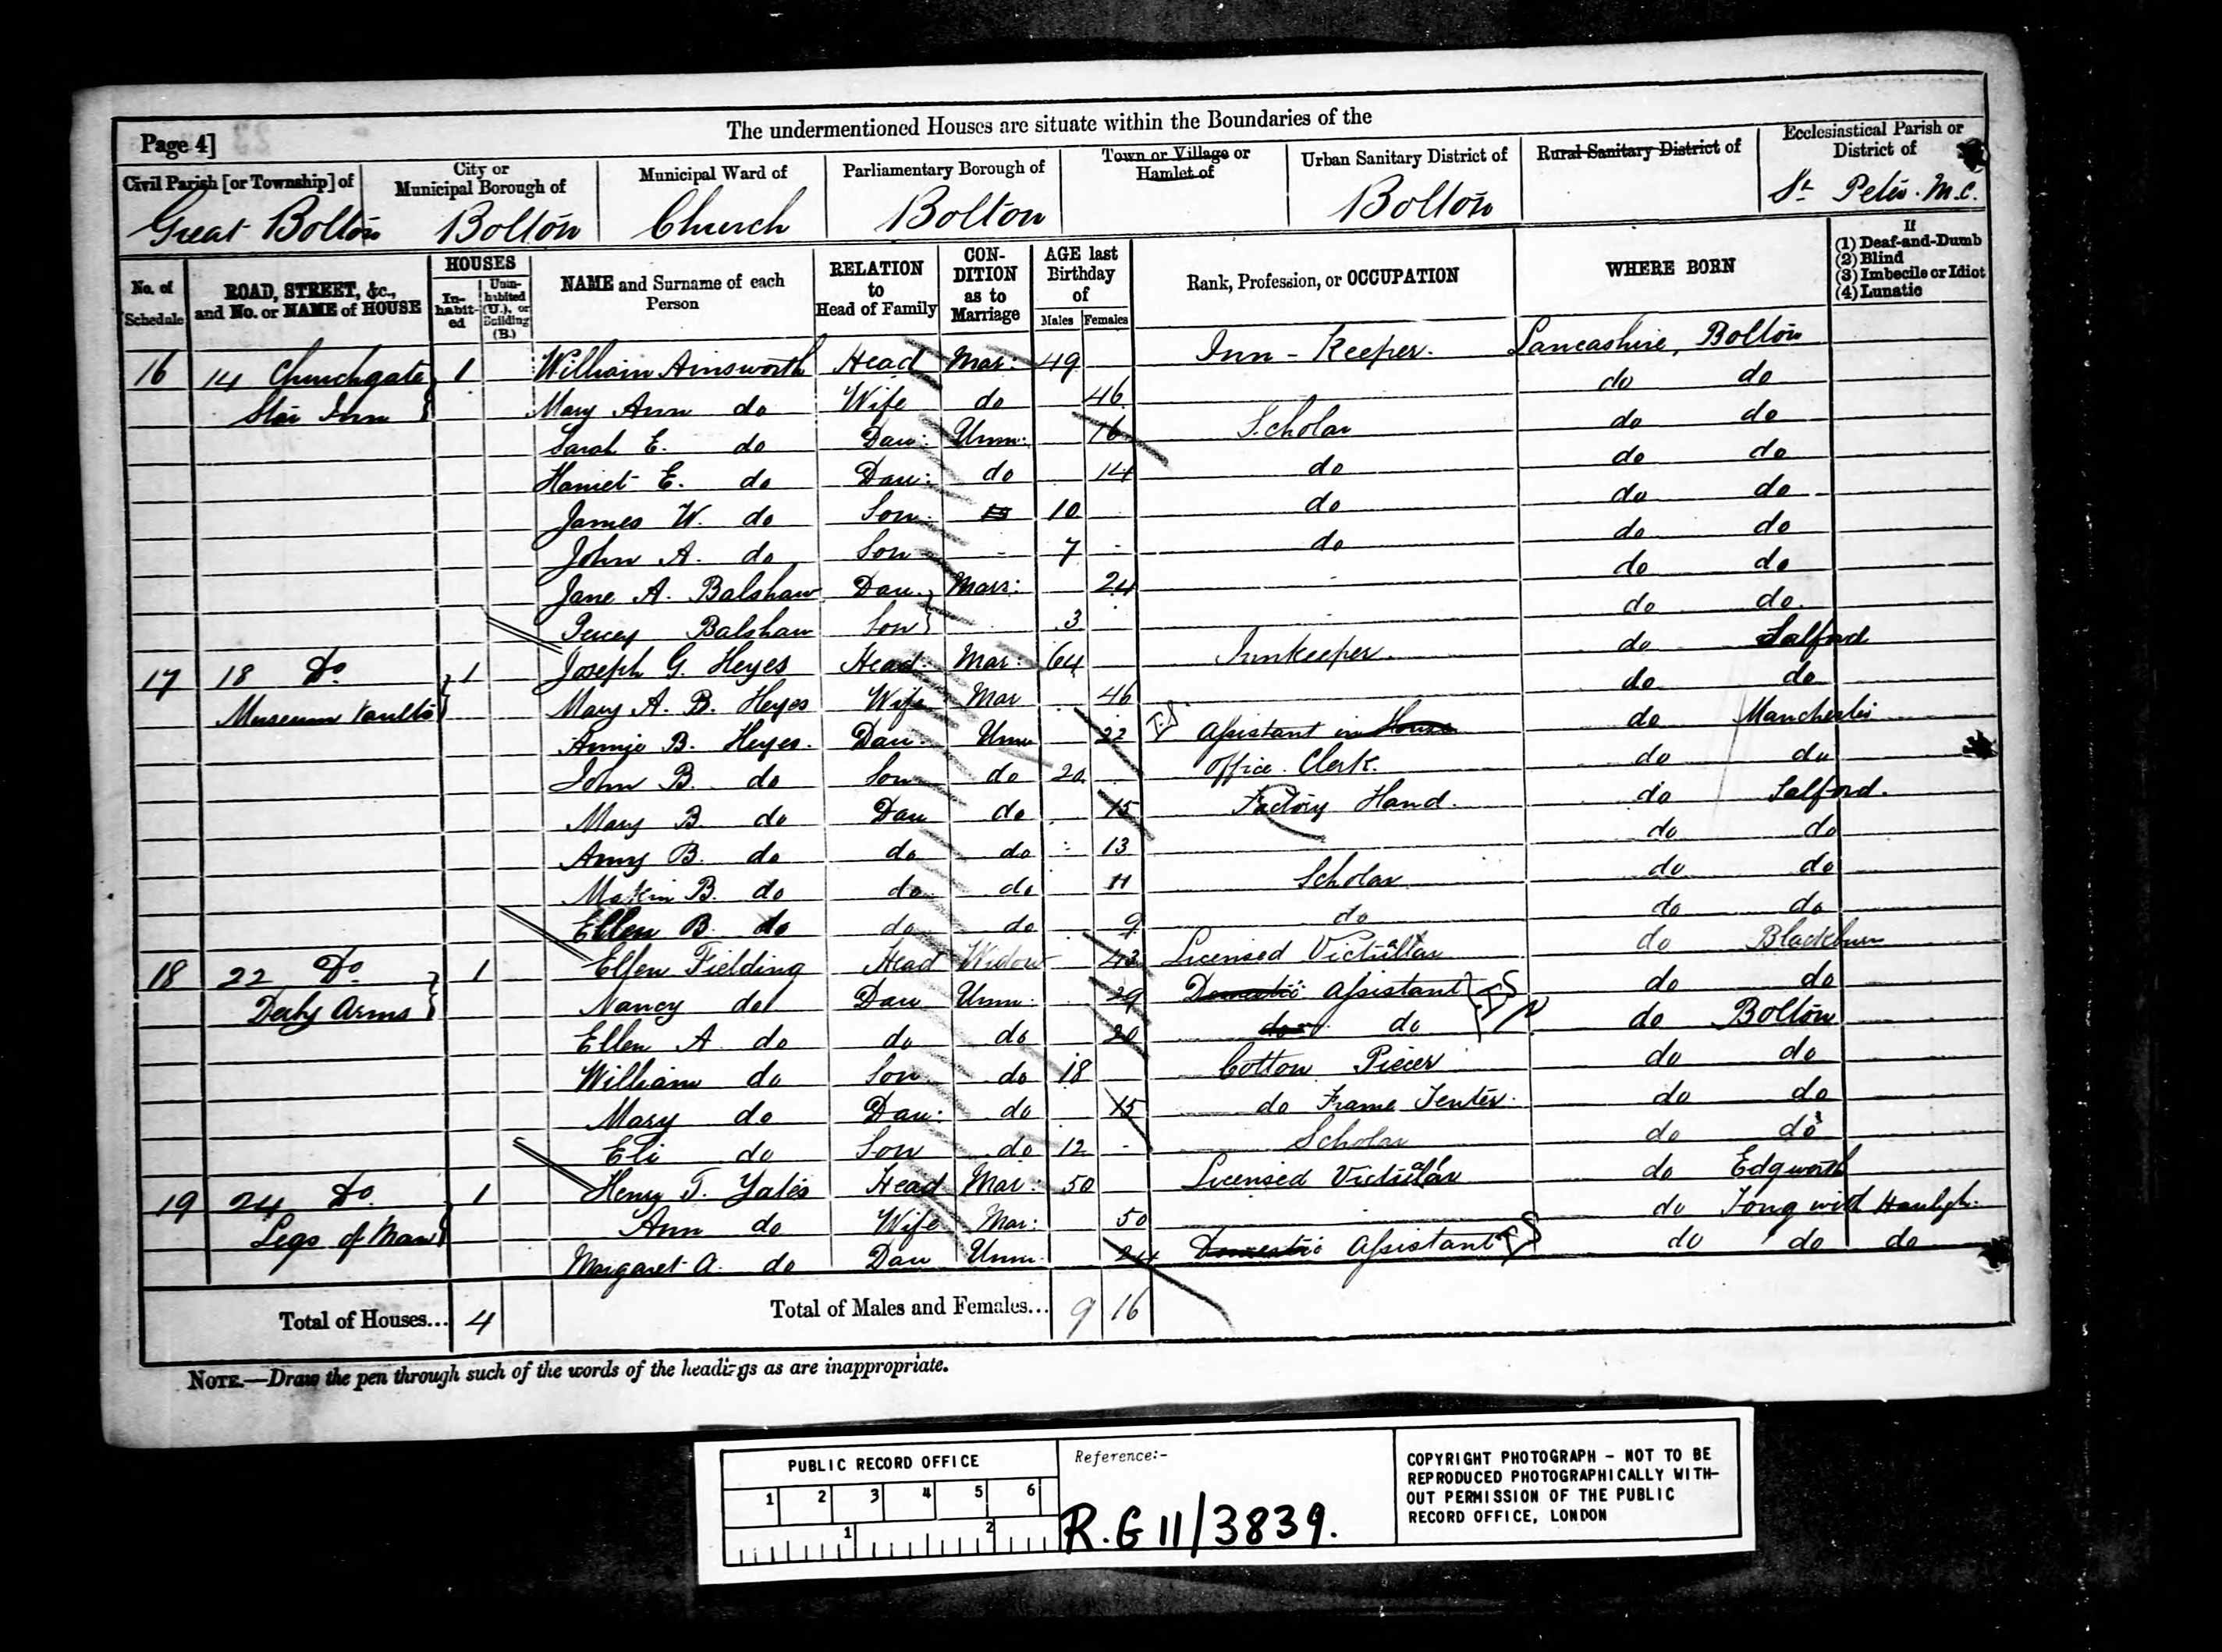 Page 4]
The undermentioned Houses are situate within the Boundaries of the
Civil Parish [or Township] of
Great Bolton
City or Municipal Borough of
Bolton
Municipal Ward of
Church
Parliamentary Borough of
Bolton
Town or Village or Hamlet of
Urban Sanitary District of
Bolton
Rural Sanitary District of
Ecclesiastical Parish or District of
St Peter M.C.
No. of Schedule
ROAD, STREET, &c., and No. or NAME of HOUSE
HOUSES
In-habit-ed
Unin-habited (U.), or Building (B.)
NAME and Surname of each Person
RELATION to Head of Family
CON-DITION as to Marriage
AGE last Birthday of
Males Females
Rank, Profession, or OCCUPATION
WHERE BORN
If
(1) Deaf-and-Dumb
(2) Blind
(3) Imbecile or Idiot
(4) Lunatic
16 14 Churchgate 1 William Ainsworth Head Mar: 49 Inn-Keeper. Lancashire, Bolton
Star Inn Mary Ann do Wife do 46 do do
Sarah E. do Dau: Unm: 16 Scholar do do
Harriet E. do Dau: do 14 do do do
James W. do Son 10 do do do
John A. do Son 7 do do do
Jane A. Balshaw Dau. Marr: 24 do do
Percy Balshaw Son 3 do do.
17 18 Do 1 Joseph G. Heyes Head Mar: 64 Innkeeper do Salford
Museum Vaults Mary A. B. Heyes Wife Mar 46 do do
Annie B. Heyes. Dau: Unm 22 Assistant in House do Manchester
John B. do Son do 20 Office Clerk. do do
Mary B. do Dau do 15 Factory Hand. do Salford.
Amy B. do do do 13 do do
B. do do do 11 Scholar do do
Ellen B. do do do 9 do do do
18 22 Do 1 Ellen Fielding Head Widow 43 Licensed Victuallar do Blackburn
Derby Arms Nancy do Dau Unm: 29 Domestic Assistant do do
Ellen A do do do 20 do do do Bolton
William do Son do 18 Cotton Piecer do do
Mary do Dau: do 15 do Frame Tenter. do do
Eli do Son do 12 Scholar do do
19 24 Do 1 Henry T. Yates Head Mar: 50 Licensed Victualar do Edgworth
Legs of Man Ann do Wife Mar: 50 do Tong with Haulgh.
Margaret A. do Dau Unm. 24 Domestic Assistant do do do
Total of Houses... 4 Total of Males and Females... 9 16
NOTE.—Draw the pen through such of the words of the headings as are inappropriate.
PUBLIC RECORD OFFICE
1 2 3 4 5 6
1 2
Reference:-
R.G 11/3839.
COPYRIGHT PHOTOGRAPH - NOT TO BE
REPRODUCED PHOTOGRAPHICALLY WITH-
OUT PERMISSION OF THE PUBLIC
RECORD OFFICE, LONDON